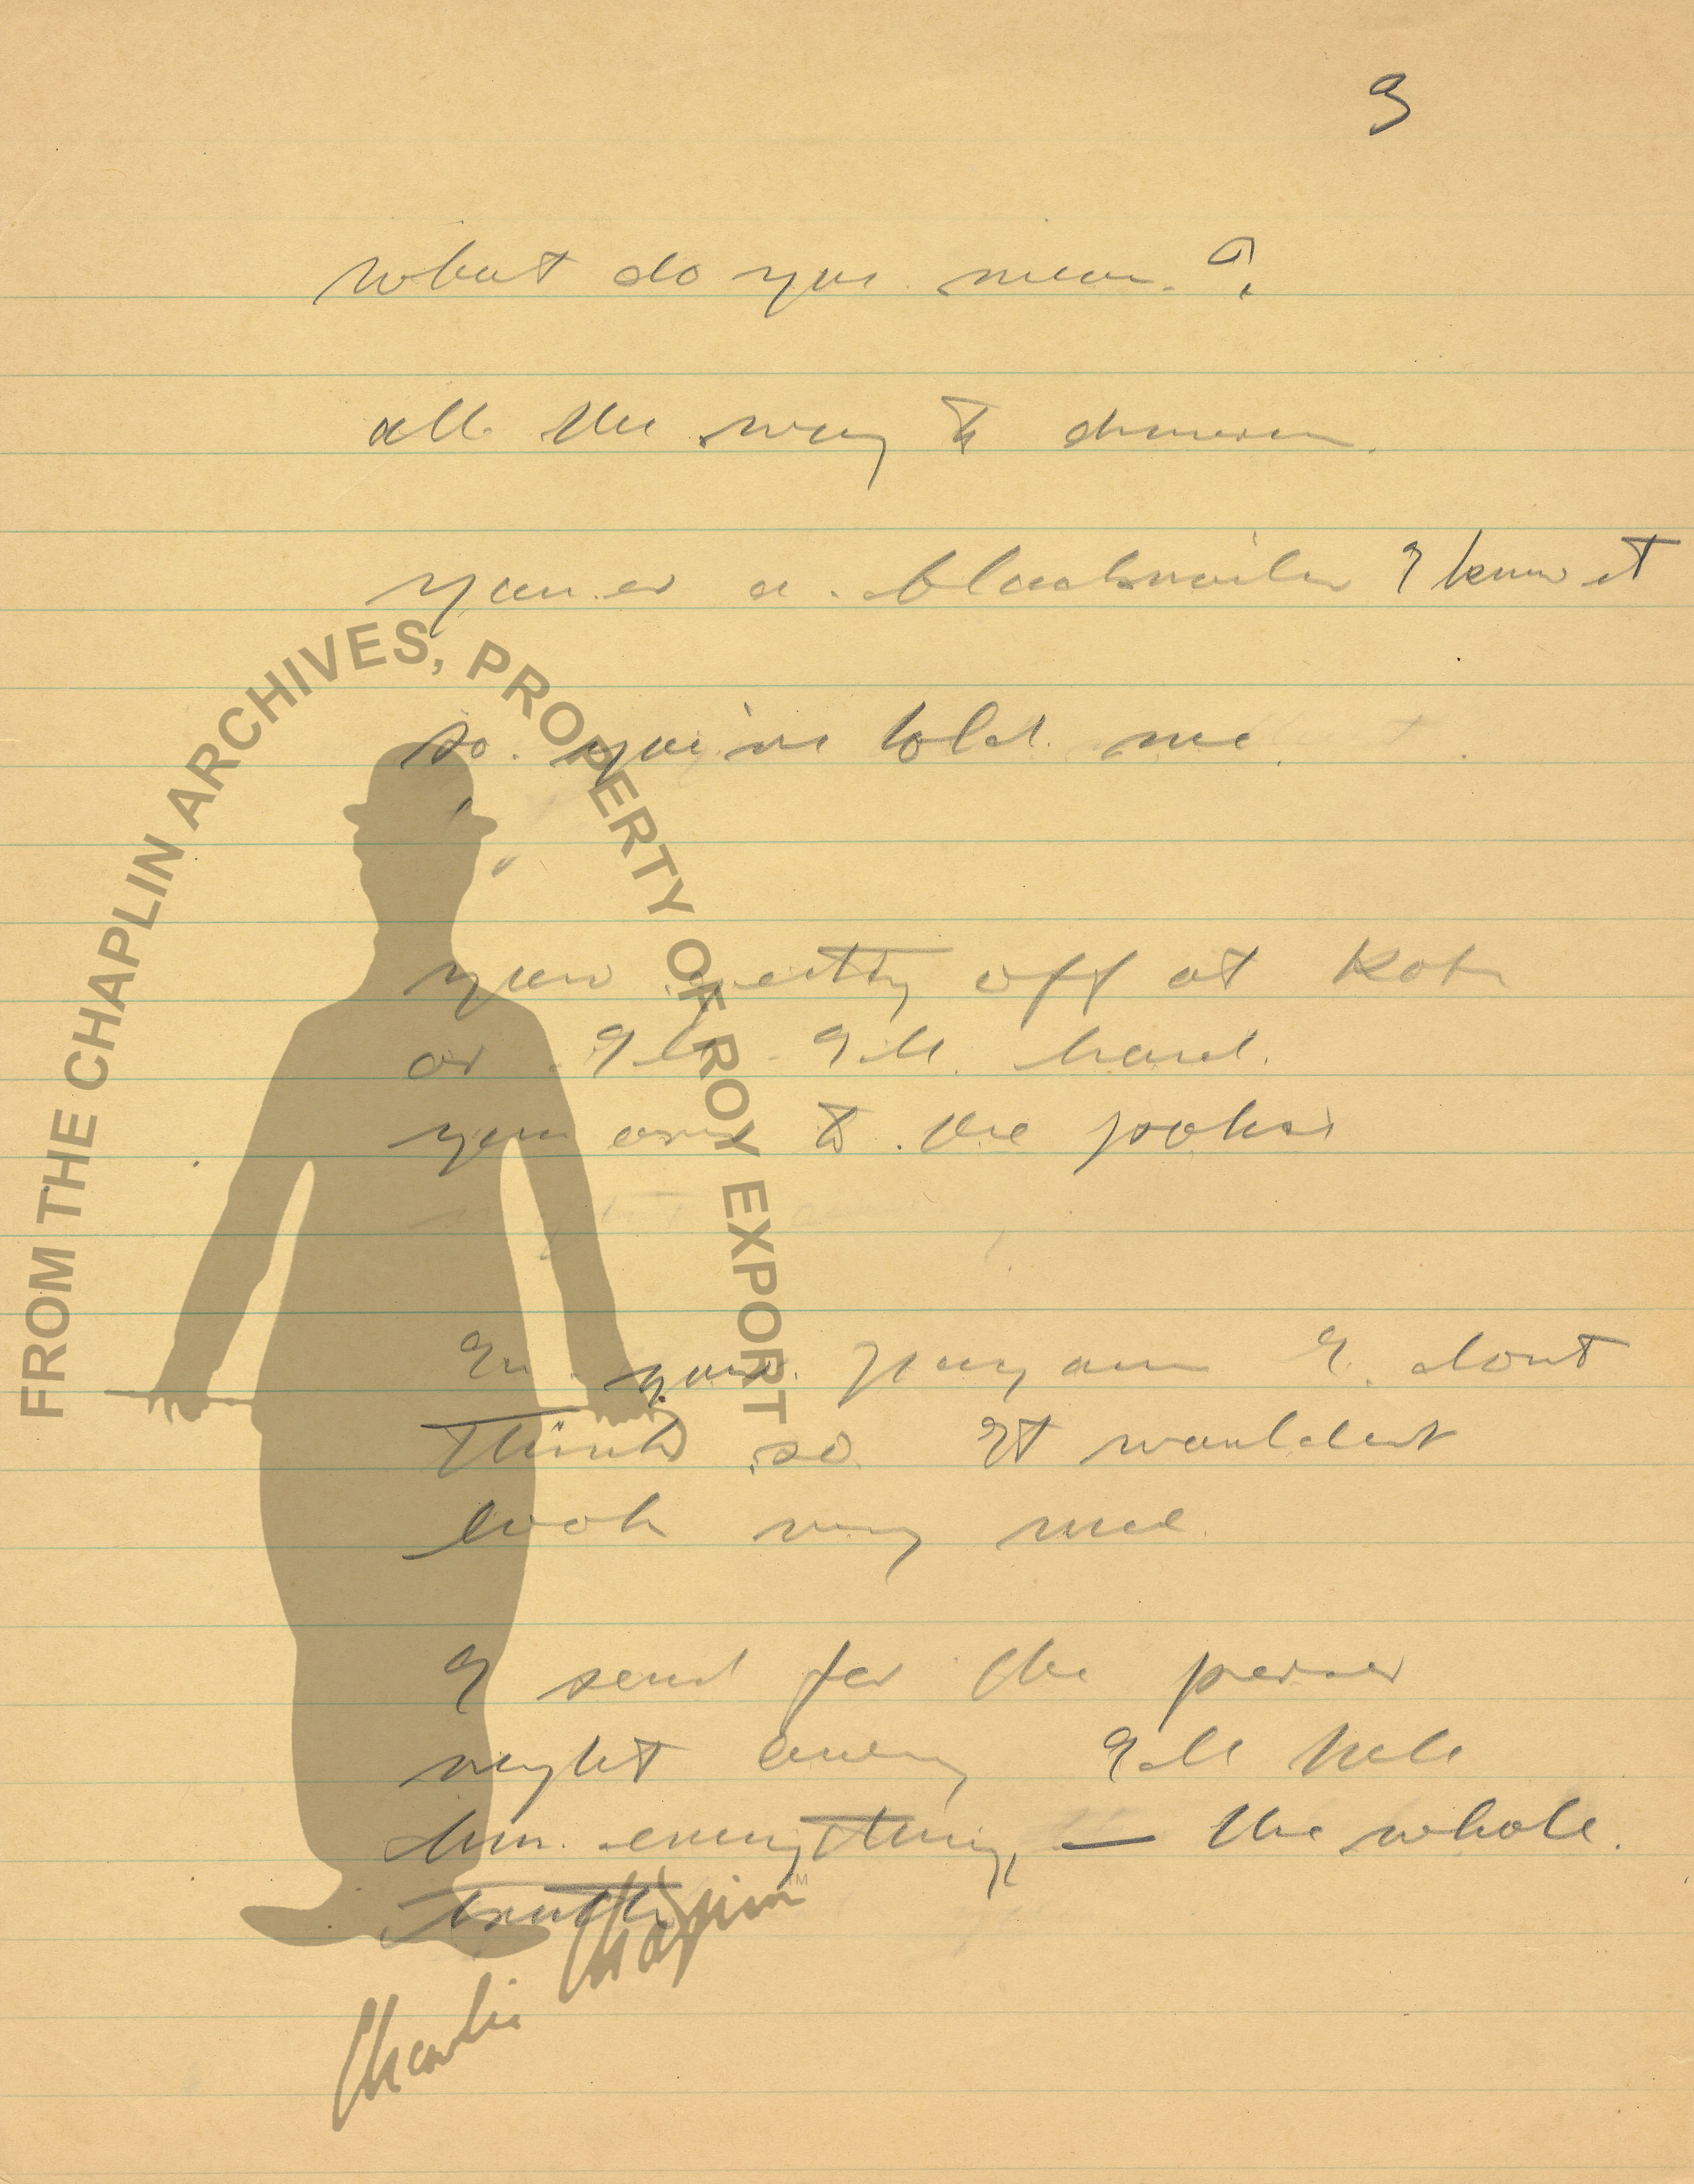 3
what do you mean. ?
all the way to
your a blackmailer I know it
so. you've told me.
your getting off at Kobe
or I'll I'll hand.
you over to the police
In your pyjamas I. dont
think so It wouldent
look very nice.
I send for the purser
right away I'll tell
him everything, — the whole.
truth
FROM THE CHAPLIN ARCHIVES, PROPERTY OF ROY EXPORT
Charlie Chaplin TM